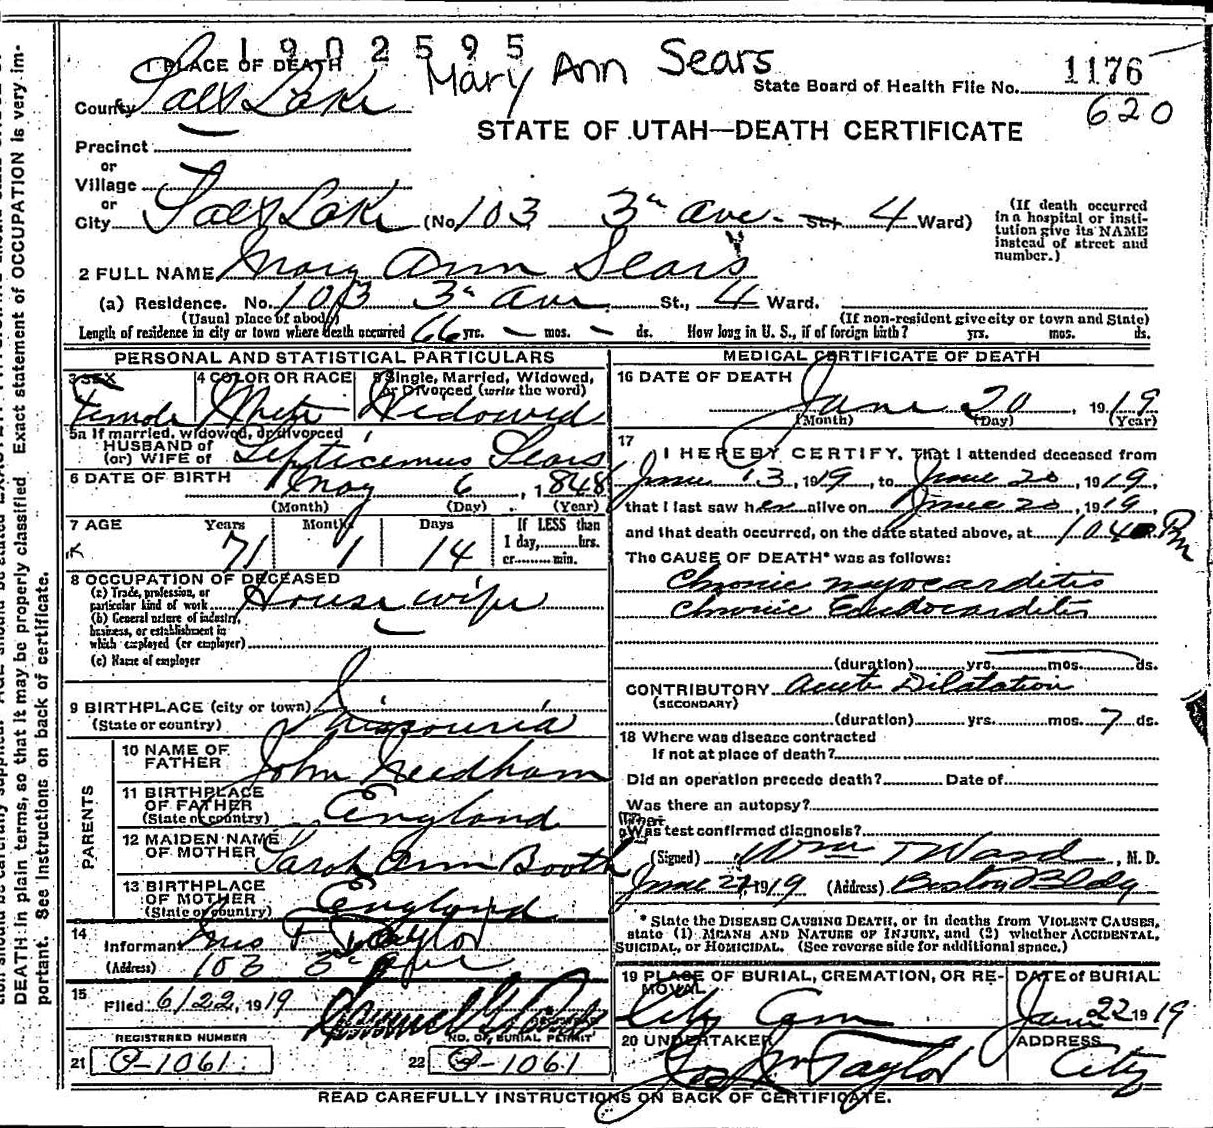 1902595
Mary Ann Sears
1 PLACE OF DEATH
State Board of Health File No. 1176
620
County Salt Lake
STATE OF UTAH—DEATH CERTIFICATE
Precinct
or
Village
or
City Salt Lake (No. 103 3rd Ave. St., 4 Ward)
(If death occurred in a hospital or insti-
tution give its NAME instead of street and number.)
2 FULL NAME Mary Ann Sears
(a) Residence. No. 103 3rd Ave St., 4 Ward.
(Usual place of abode) (If non-resident give city or town and State)
Length of residence in city or town where death occurred 66 yrs. — mos. — ds. How long in U. S., if of foreign birth? yrs. mos. ds.
PERSONAL AND STATISTICAL PARTICULARS
3 SEX Female
4 COLOR OR RACE White
5 Single, Married, Widowed, or Divorced (write the word) Widowed
5a If married, widowed, or divorced
HUSBAND of
(or) WIFE of Septicemus Sears
6 DATE OF BIRTH May 6, 1848
(Month) (Day) (Year)
7 AGE Years 71 Months 1 Days 14
If LESS than
1 day, hrs.
or min.
8 OCCUPATION OF DECEASED
(a) Trade, profession, or
particular kind of work House wife
(b) General nature of industry,
business, or establishment in
which employed (or employer)
(c) Name of employer
9 BIRTHPLACE (city or town)
(State or country) Missouria
PARENTS
10 NAME OF FATHER John Needham
11 BIRTHPLACE OF FATHER (State or country) England
12 MAIDEN NAME OF MOTHER Sarah Ann Booth
13 BIRTHPLACE OF MOTHER (State or country) England
14
Informant Mrs F Taylor
(Address) 103 3rd Ave
15
Filed 6/22, 1919
REGISTERED NUMBER
21 C-1061
NO. OF BURIAL PERMIT
22 C-1061
MEDICAL CERTIFICATE OF DEATH
16 DATE OF DEATH
June 20, 1919
(Month) (Day) (Year)
17
I HEREBY CERTIFY, That I attended deceased from
June 13, 1919, to June 20, 1919,
that I last saw her alive on June 20, 1919,
and that death occurred, on the date stated above, at 1040 Pm
The CAUSE OF DEATH* was as follows:
Chronic myocarditis
Chronic Endocarditis
(duration) yrs. mos. ds.
CONTRIBUTORY Acute Dilatation
(SECONDARY)
(duration) yrs. mos. 7 ds.
18 Where was disease contracted
If not at place of death?
Did an operation precede death? Date of
Was there an autopsy?
What
Was test confirmed diagnosis?
(Signed) Wm T Ward, M. D.
June 21, 1919 (Address) Boston Bldg
* State the DISEASE CAUSING DEATH, or in deaths from VIOLENT CAUSES,
state (1) MEANS AND NATURE OF INJURY, and (2) whether ACCIDENTAL,
SUICIDAL, or HOMICIDAL. (See reverse side for additional space.)
19 PLACE OF BURIAL, CREMATION, OR RE-
MOVAL
City Cem
DATE of BURIAL
June 22 1919
20 UNDERTAKER
Jos Wm Taylor
ADDRESS
City
READ CAREFULLY INSTRUCTIONS ON BACK OF CERTIFICATE.
DEATH in plain terms, so that it may be properly classified. Exact statement of OCCUPATION is very im-
portant. See Instructions on back of certificate.